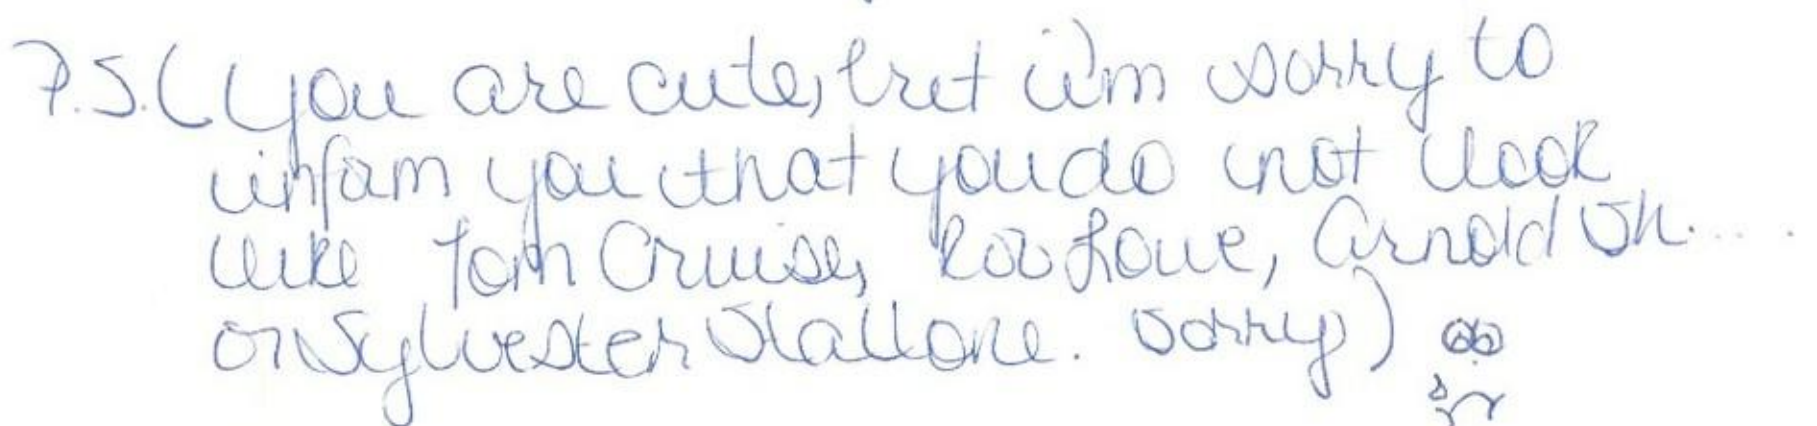 P.S. (you are cute, but i'm sorry to
infam you that you do not look
like Tom Cruise, Rob Lowe, Arnold Sh.....
or Sylvester Stallone. Sorry)